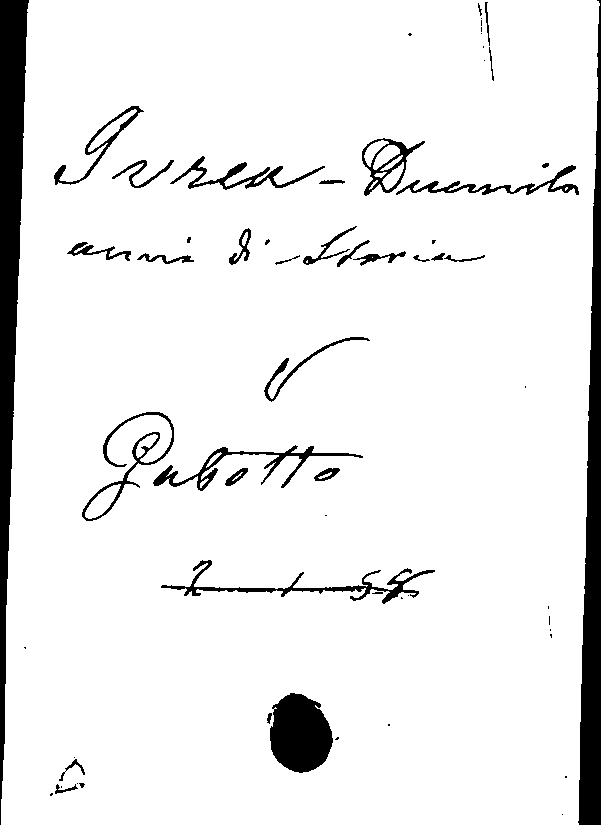 Ivrea - Duemila
anni di Storia
V
Gabotto